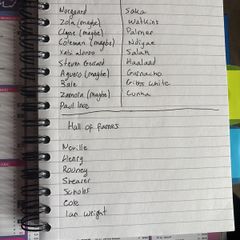 Norgaard Saka
Zola (maybe) Watkins
Clyne (maybe) Palmer
Coleman (maybe) Ndiyae
Xabi alonso Salah
Steven Gerrard Haaland
Aguero (maybe) Garnacho
Bale Gibbs White
Zamola (maybe) Cunha
Paul Ince
Hall of fames
Neville
Henry
Rooney
Shearer
Scholes
Cole
Ian Wright